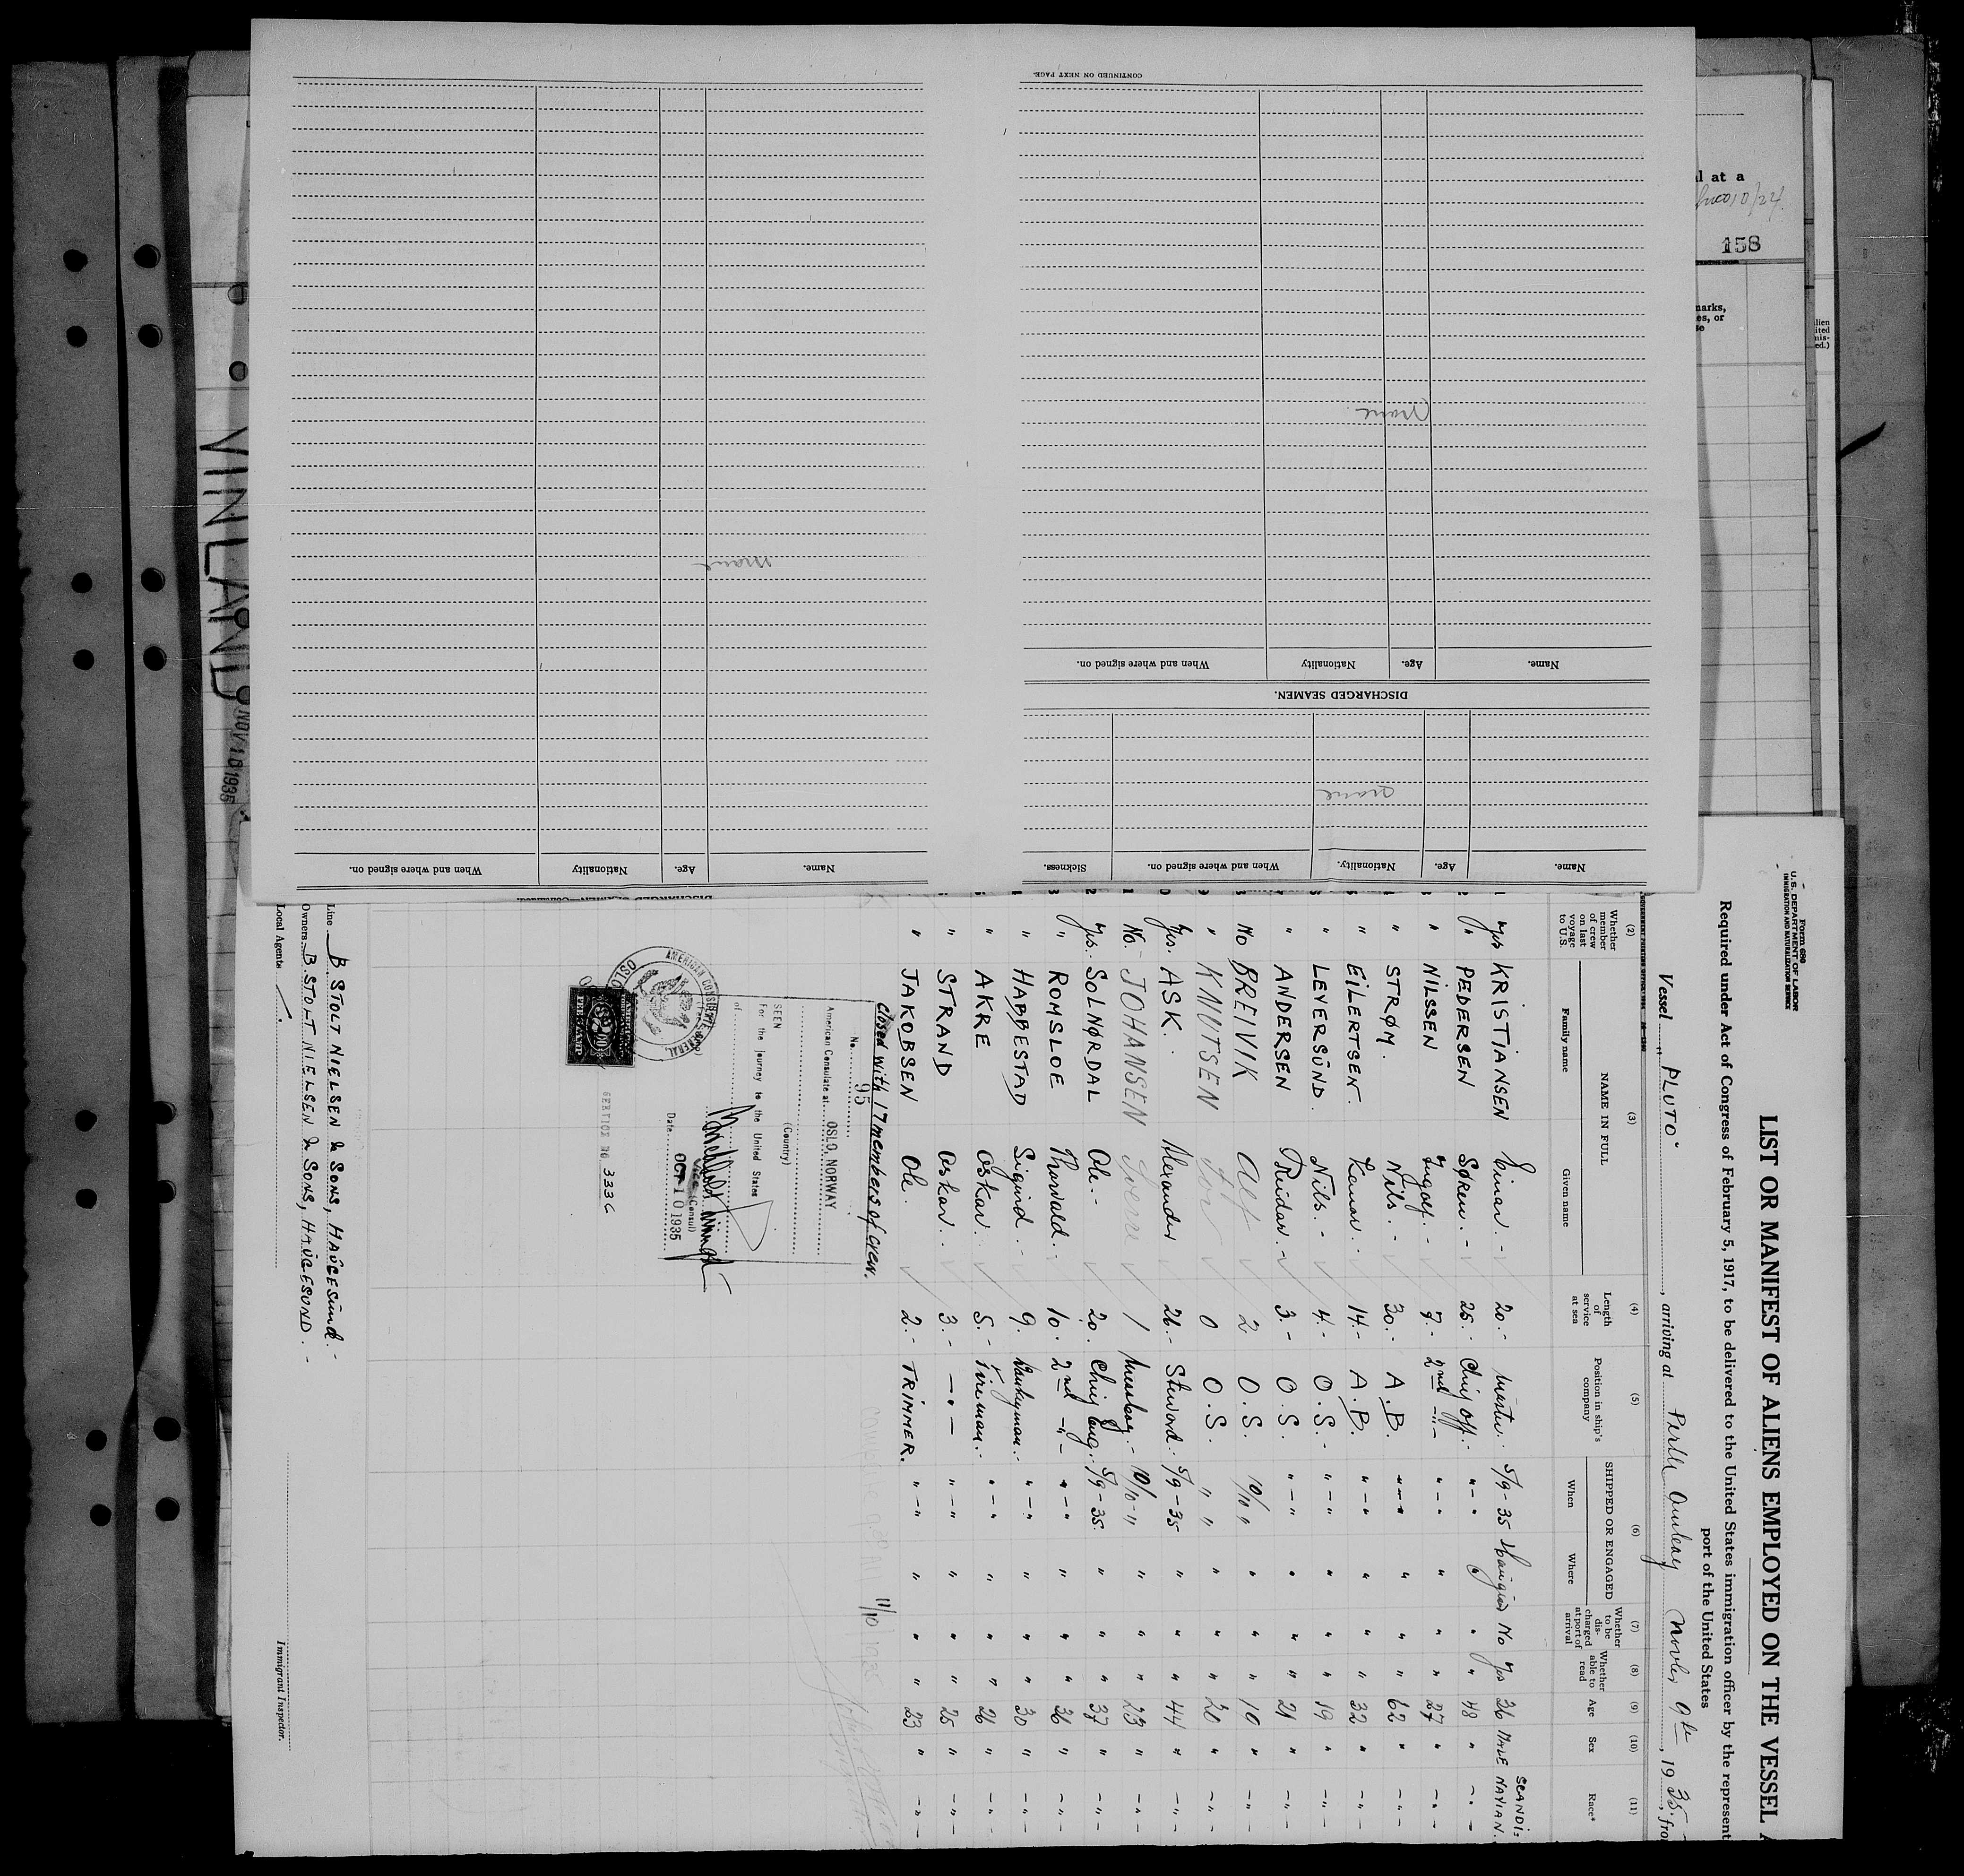 Form 680
U. S. DEPARTMENT OF LABOR
IMMIGRATION AND NATURALIZATION SERVICE
LIST OR MANIFEST OF ALIENS EMPLOYED ON THE VESSEL A
Required under Act of Congress of February 5, 1917, to be delivered to the United States immigration officer by the represent
port of the United States
Vessel "PLUTO", arriving at Perth Amboy Novber 9th, 1935, fro
(2) (3) (4) (5) (6) (7) (8) (9) (10) (11)
Whether member of crew on last voyage to U.S. NAME IN FULL Family name Given name Length of service at sea Position in ship's company SHIPPED OR ENGAGED When Where Whether to be discharged at port of arrival Whether able to read Age Sex Race*
Yes KRISTIANSEN Einar.- 20.- Master. 5/9-35 No Yes 36 MALE SCANDI=NAVIAN.
" PEDERSEN Søren.- 25.- Chief Off.- "-" " " " 48 " -"-
" NILSSEN Ingolf.- 7.- 2nd -"- "-" " " " 27 " -"-
" STRØM. Nils.- 30.- A.B. "-" " " " 62 " -"-
" EILERTSEN. 14.- A.B. "-" " " " 32 " -"-
" LEVERSUND. Nils.- 4.- O.S.- "-" " " " 19 " -"-
" ANDERSEN Reidar.- 3.- O.S. "-" " " " 21 " -"-
No BREIVIK Alf 2 O.S. 10/10 " " " " 19 " -"-
" KNUTSEN 0 O.S. " " " " " 20 " -"-
Yes. ASK. Alexander 26.- Steward. 5/9-35 " " " 44 " -"-
No.- JOHANSEN Sverre 1 Messboy.- 10/10-" " " " 23 " -"-
Yes. SOLNØRDAL Ole.- 20. Chief Eng. 5/9-35. " " " 37 " -"-
" ROMSLOE Thorvald.- 10. 2nd -"- "-" " " " 36 " -"-
" HABBESTAD Sigurd.- 9. Donkeyman.- "-" " " " 30 " -"-
" AKRE Oskar. 5.- Fireman.- "-" " " " 26 " -"-
" STRAND Oskar.- 3.- -"- "-" " " " 25 " -"-
" JAKOBSEN Ole. 2.- TRIMMER. "-" " " " 23 " -"-
closed with 17 members of crew.
No. 95
American Consulate at OSLO, NORWAY
(Country)
SEEN
For the journey to the United States
of
Vice (Consul)
Date OCT 10 1935
SERVICE NO 3336
AMERICAN CONSULATE GENERAL
OSLO
AMERICAN
$2.00
FEE STAMP
11/10 1935
Line B STOLT NIELSEN & SONS, HAUGESUND.-
Owners B. STOLT NIELSEN & SONS, HAUGESUND.-
Local Agents
Immigrant Inspector.
Name. Age. Nationality. When and where signed on. Sickness.
None
DISCHARGED SEAMEN.
Name. Age. Nationality When and where signed on.
None
CONTINUED ON NEXT PAGE.
DISCHARGED SEAMEN—Continued.
Name. Age. Nationality When and where signed on.
None
VINLAND
NOV 10 1935
l at a
158
narks,
es, or
se
lien
ited
nis-
ed.)